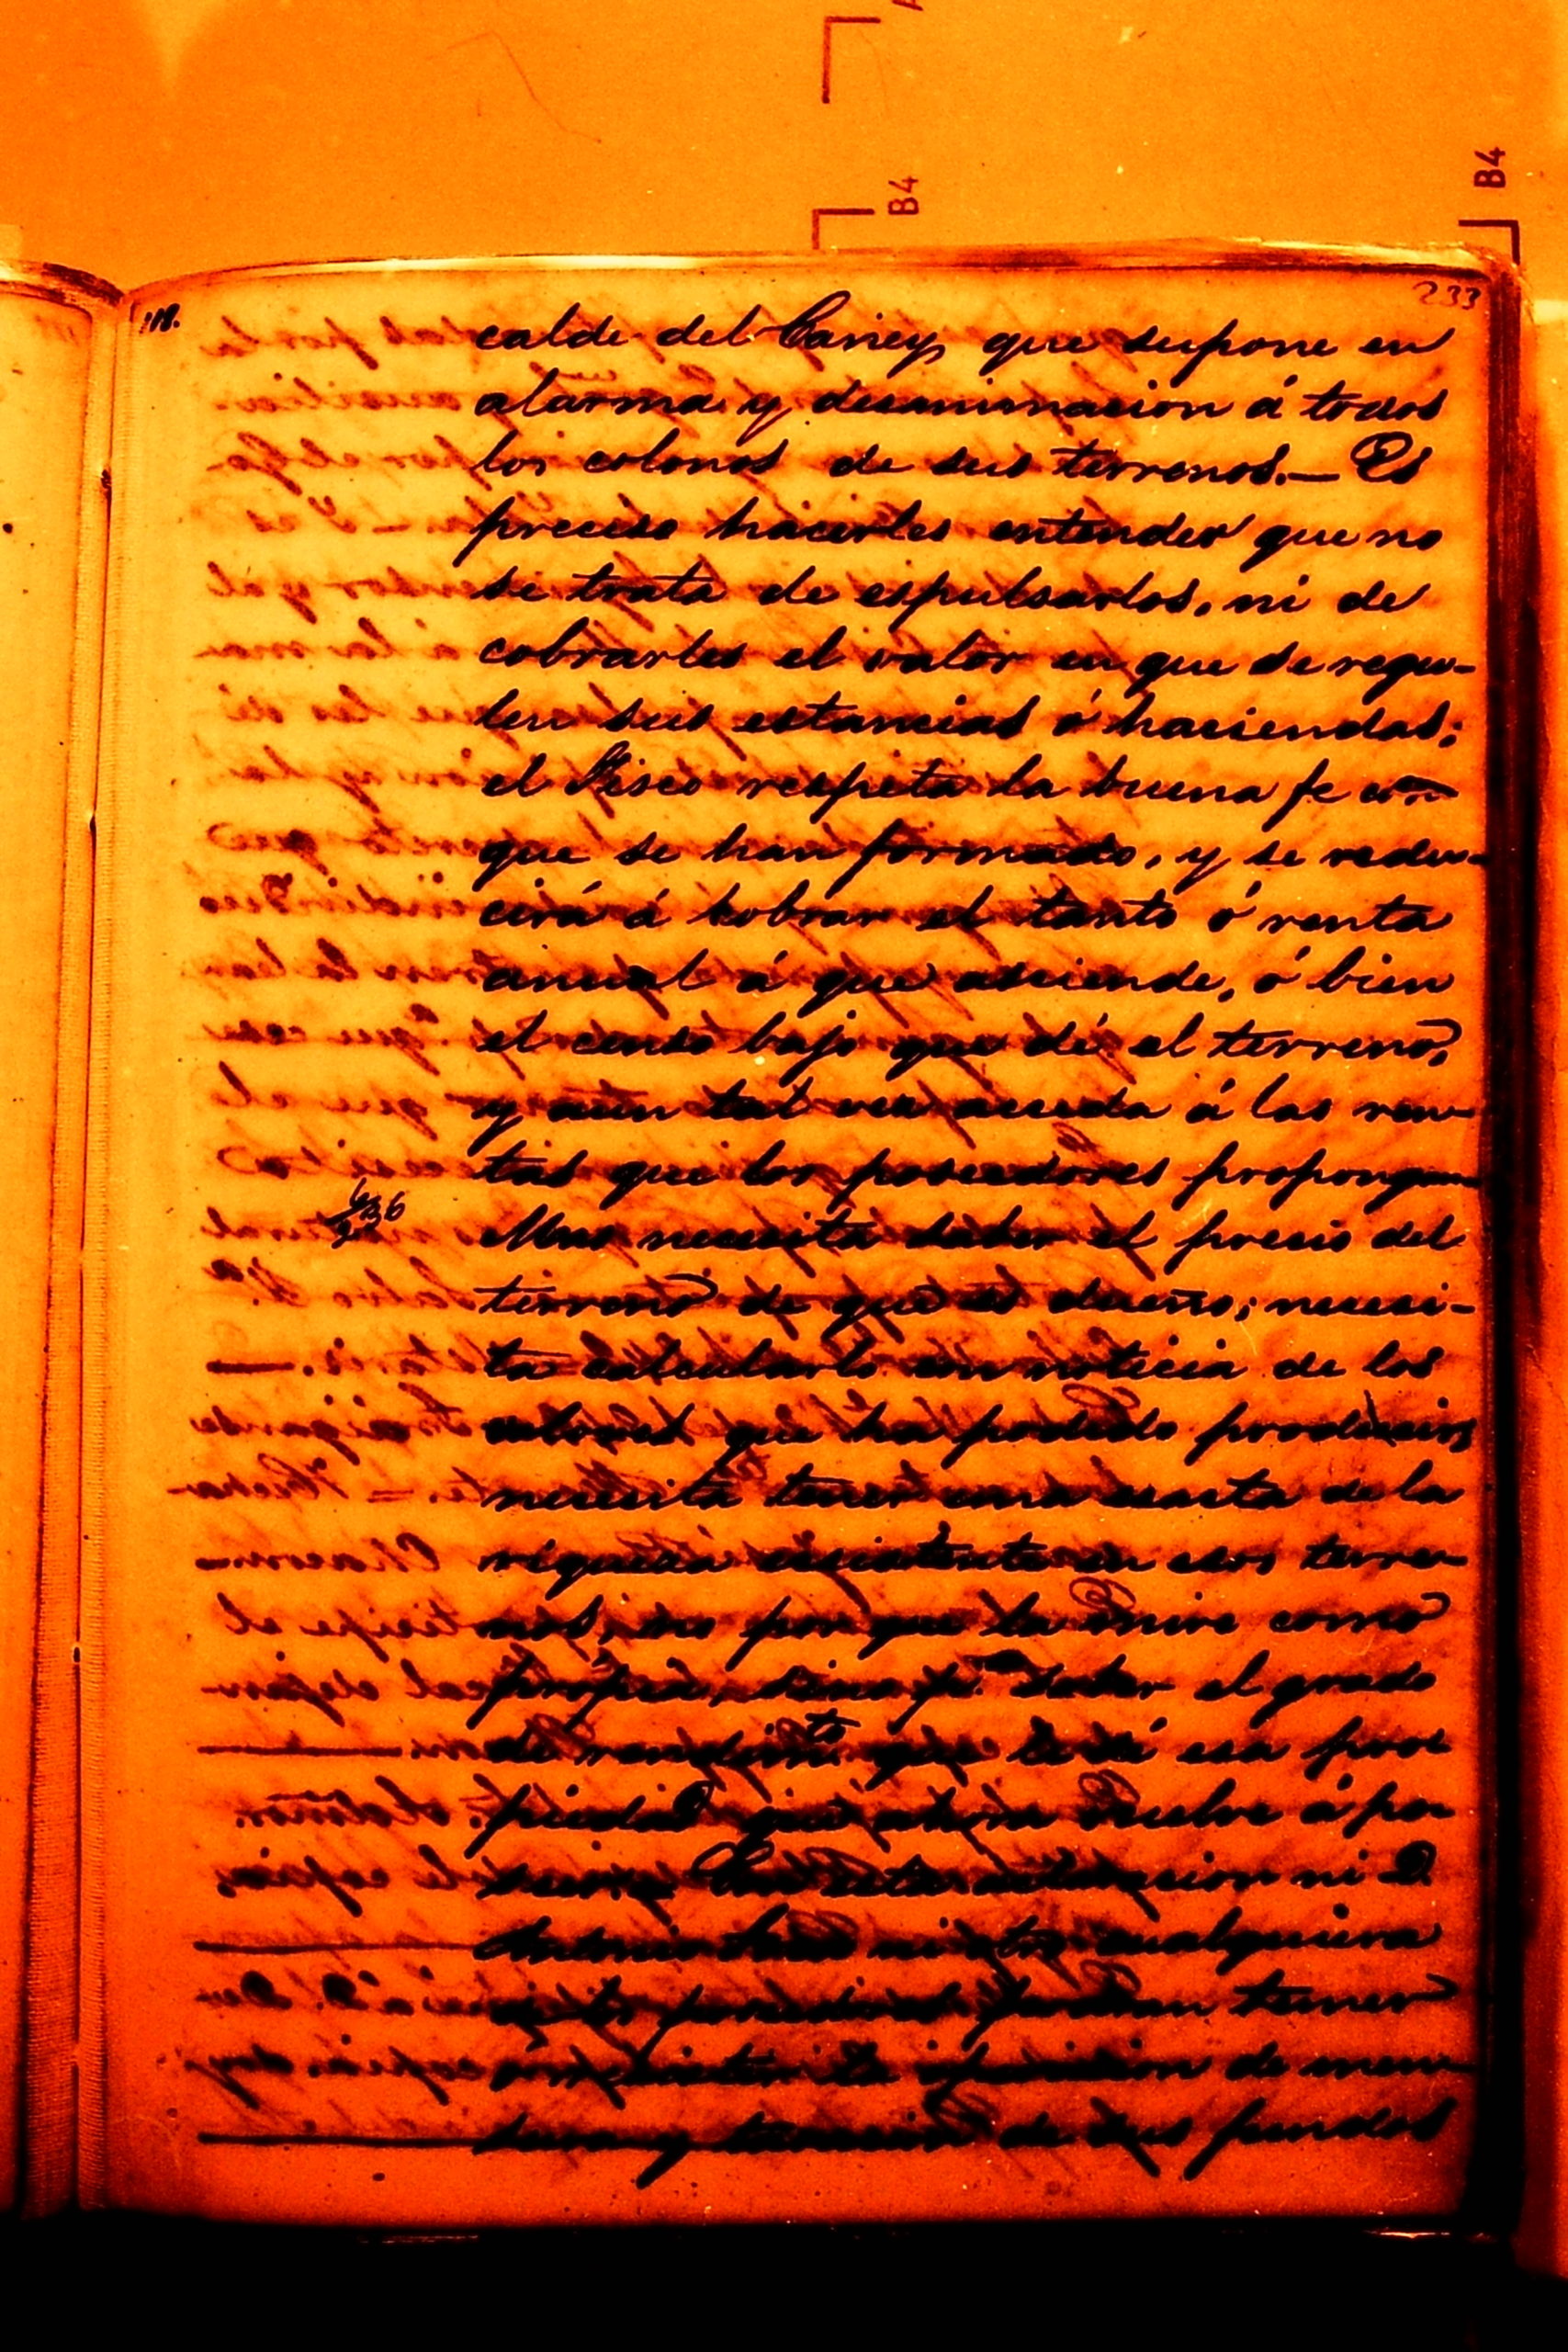 B4
B4
118.
233
calde del Caney, que supone en
alarma y desanimacion á todos
los colonos de sus terrenos.— Es
preciso hacerles entender que no
se trata de espulsarlos, ni de
cobrarles el valor en que se regu-
len sus estancias ó haciendas;
el Fisco respeta la buena fe con
que se han formado, y se redu-
cirá á cobrar el tanto ó renta
anual á que asciende, ó bien
el censo bajo que dé el terreno,
y aun tal vez acceda á las ren-
tas que los poseedores propongan
Mas necesita saber el precio del
terreno de que es dueño; necesi-
ta calcularlo con noticia de los
valores que ha podido producir,
necesita tener una exacta de la
riqueza ecsistente en esos terre-
nos, no por que la mire como
propia, sino pª saber el grado
de rendimto que le dé esa pro
piedad que ahora vuelve á po
seer, y En esta situacion ni D.
Antonio ni otro cualquiera
de los poseedores podran temer
ni la operacion de men
sura y tasacion de sus fundos